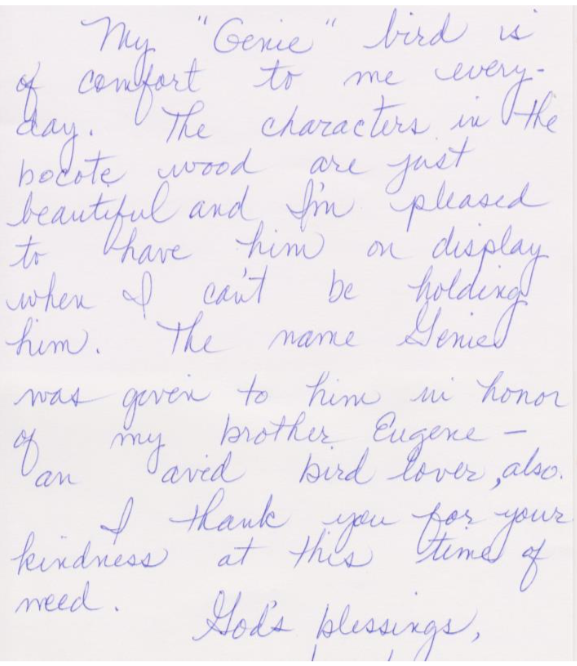 My "Genie" bird is
of comfort to me every-
day. The characters in the
bocote wood are just
beautiful and I'm pleased
to have him on display
when I can't be holding
him. The name Genie
was given to him in honor
of my brother Eugene —
an avid bird lover, also.
I thank you for your
kindness at this time of
need.
God's blessings,